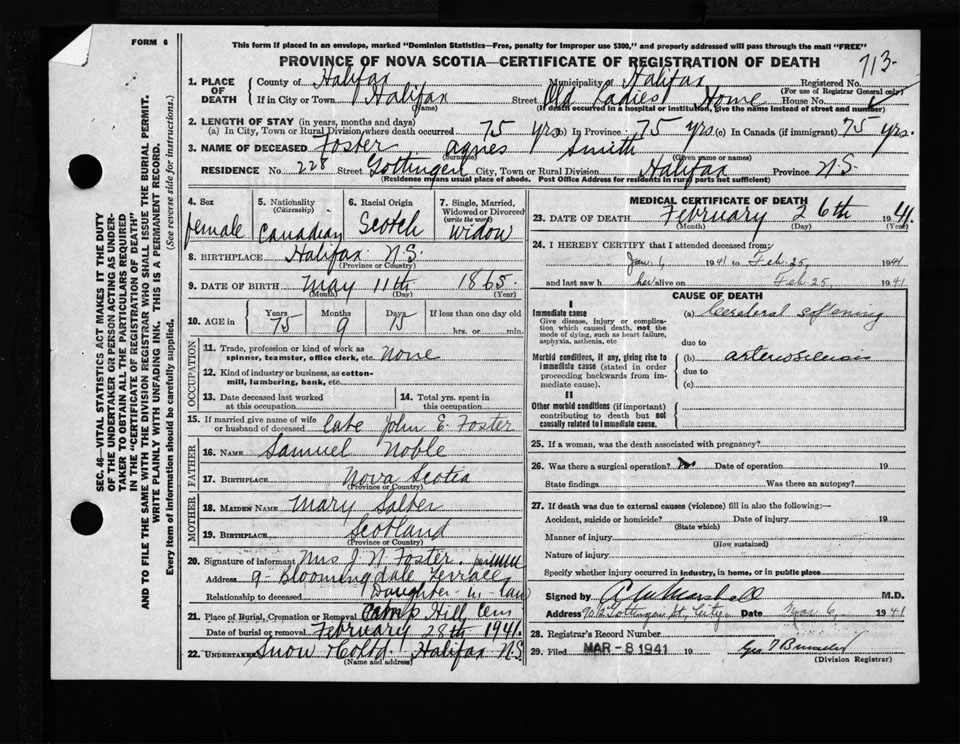 FORM 6
This form if placed in an envelope, marked "Dominion Statistics—Free, penalty for improper use $300," and properly addressed will pass through the mail "FREE"
PROVINCE OF NOVA SCOTIA—CERTIFICATE OF REGISTRATION OF DEATH
713
1. PLACE OF DEATH County of Halifax Municipality of Halifax Registered No.
(For use of Registrar General only)
If in City or Town Halifax Street Old Ladies Home House No.
(Name) (If death occurred in a hospital or institution, give the name instead of street and number)
2. LENGTH OF STAY (in years, months and days)
(a) In City, Town or Rural Division where death occurred 75 yrs (b) In Province 75 yrs (c) In Canada (if immigrant) 75 yrs.
3. NAME OF DECEASED Foster Agnes Smith
(Surname) (Given name or names)
RESIDENCE No. 228 Street Gottingen City, Town or Rural Division Halifax Province N.S.
(Residence means usual place of abode. Post Office Address for residents in rural parts not sufficient)
4. Sex female
5. Nationality (Citizenship) Canadian
6. Racial Origin Scotch
7. Single, Married, Widowed or Divorced (write the word) Widow
8. BIRTHPLACE Halifax N.S.
(Province or Country)
9. DATE OF BIRTH May 11th 1865
(Month) (Day) (Year)
10. AGE in Years 75 Months 9 Days 15 If less than one day old hrs. or min.
OCCUPATION
11. Trade, profession or kind of work as spinner, teamster, office clerk, etc. None
12. Kind of industry or business, as cotton-mill, lumbering, bank, etc.
13. Date deceased last worked at this occupation
14. Total yrs. spent in this occupation
15. If married give name of wife or husband of deceased late John E. Foster
FATHER
16. NAME Samuel Noble
17. BIRTHPLACE Nova Scotia
(Province or Country)
MOTHER
18. MAIDEN NAME Mary Salter
19. BIRTHPLACE Scotland
(Province or Country)
20. Signature of informant Mrs J. N. Foster.
Address 9 - Bloomingdale Terrace
Relationship to deceased Daughter-in-law
21. Place of Burial, Cremation or Removal Camp Hill Cem
Date of burial or removal February 28th 1941.
22. Undertaker Snow & Co Ltd. Halifax N.S.
(Name and address)
MEDICAL CERTIFICATE OF DEATH
23. DATE OF DEATH February 26th 1941.
(Month) (Day) (Year)
24. I HEREBY CERTIFY that I attended deceased from:
Jan. 1, 1941 to Feb. 25, 1941
and last saw h her alive on Feb. 25, 1941
CAUSE OF DEATH
I
Immediate cause
Give disease, injury or complication which caused death, not the mode of dying, such as heart failure, asphyxia, asthenia, etc
(a) Cerebral softening
due to
Morbid conditions, if any, giving rise to immediate cause (stated in order proceeding backwards from immediate cause).
(b) arteriosclerosis
due to
(c)
II
Other morbid conditions (if important) contributing to death but not causally related to immediate cause.
25. If a woman, was the death associated with pregnancy?
26. Was there a surgical operation? No Date of operation 19
State findings Was there an autopsy?
27. If death was due to external causes (violence) fill in also the following:—
Accident, suicide or homicide? Date of injury 19
(State which)
Manner of injury
(How sustained)
Nature of injury
Specify whether injury occurred in industry, in home, or in public place
Signed by Marshall M.D.
Address Gottingen St. City Date Mar 6, 1941
28. Registrar's Record Number
29. Filed MAR - 8 1941 19
(Division Registrar)
SEC. 46—VITAL STATISTICS ACT MAKES IT THE DUTY
OF THE UNDERTAKER OR PERSON ACTING AS UNDER-
TAKER TO OBTAIN ALL THE PARTICULARS REQUIRED
IN THE "CERTIFICATE OF REGISTRATION OF DEATH"
AND TO FILE THE SAME WITH THE DIVISION REGISTRAR WHO SHALL ISSUE THE BURIAL PERMIT.
WRITE PLAINLY WITH UNFADING INK. THIS IS A PERMANENT RECORD.
Every item of information should be carefully supplied. (See reverse side for instructions.)